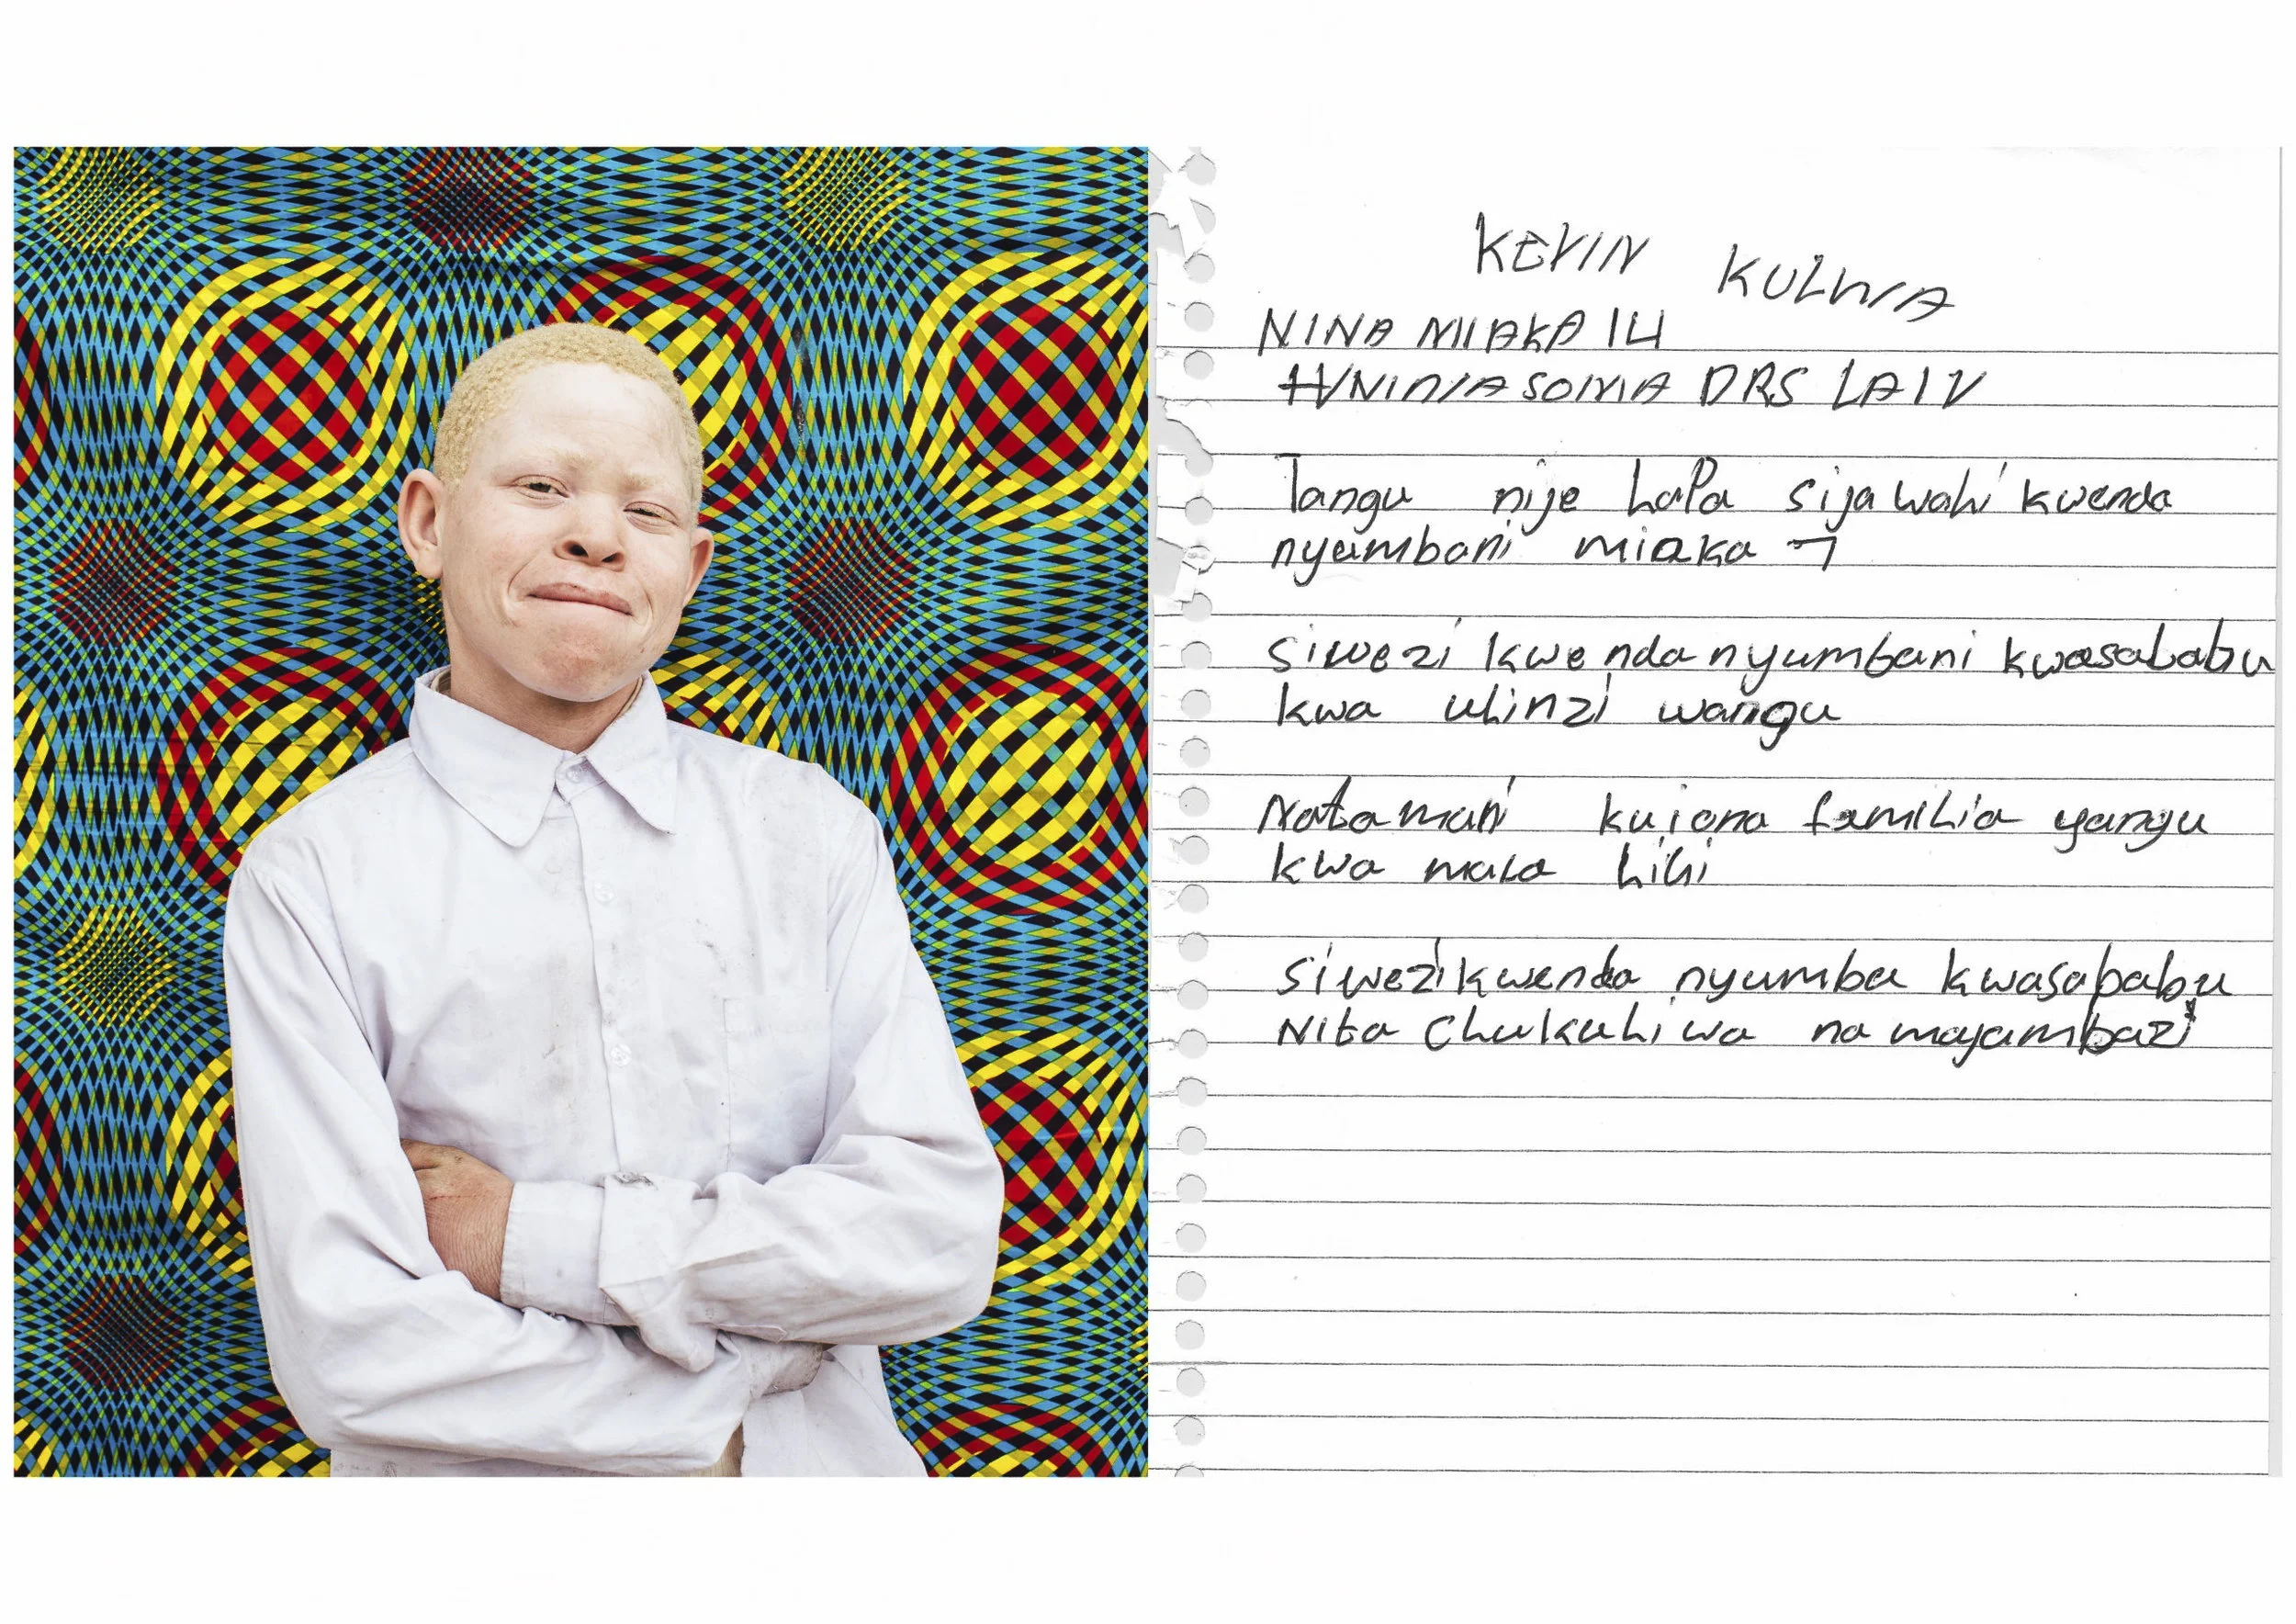 KEVIN KULWA
NINA MIAKA 14
NINASOMA DRS LA IV
Tangu nije hapa sijawahi kwenda
nyumbani miaka 7
siwezi kwenda nyumbani kwasababu
kwa ulinzi wangu
Natamani kuiona familia yangu
kwa mala hihi
siwezi kwenda nyumba kwasababu
Nita chukuliwa na majambazi